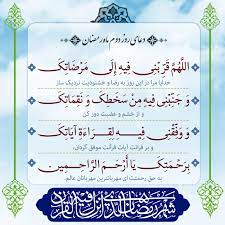 دعای روز دوم ماه رمضان
اللَّهُمَّ قَرِّبْنِی فِیهِ إِلَی مَرْضَاتِکَ
خدایا مرا در این روز به رضا و خشنودیت نزدیک ساز
وَ جَنِّبْنِی فِیهِ مِنْ سَخَطِکَ وَ نَقِمَاتِکَ
و از خشم و غضبت دور کن
وَ وَفِّقْنِی فِیهِ لِقِرَاءَةِ آیَاتِکَ
و بر قرائت آیات قرآنت موفق گردان،
بِرَحْمَتِکَ یَا أَرْحَمَ الرَّاحِمِینَ
به حق رحمتت ای مهربانترین مهربانان عالم.
شهر رمضان الذی أنزل فیه القرآن